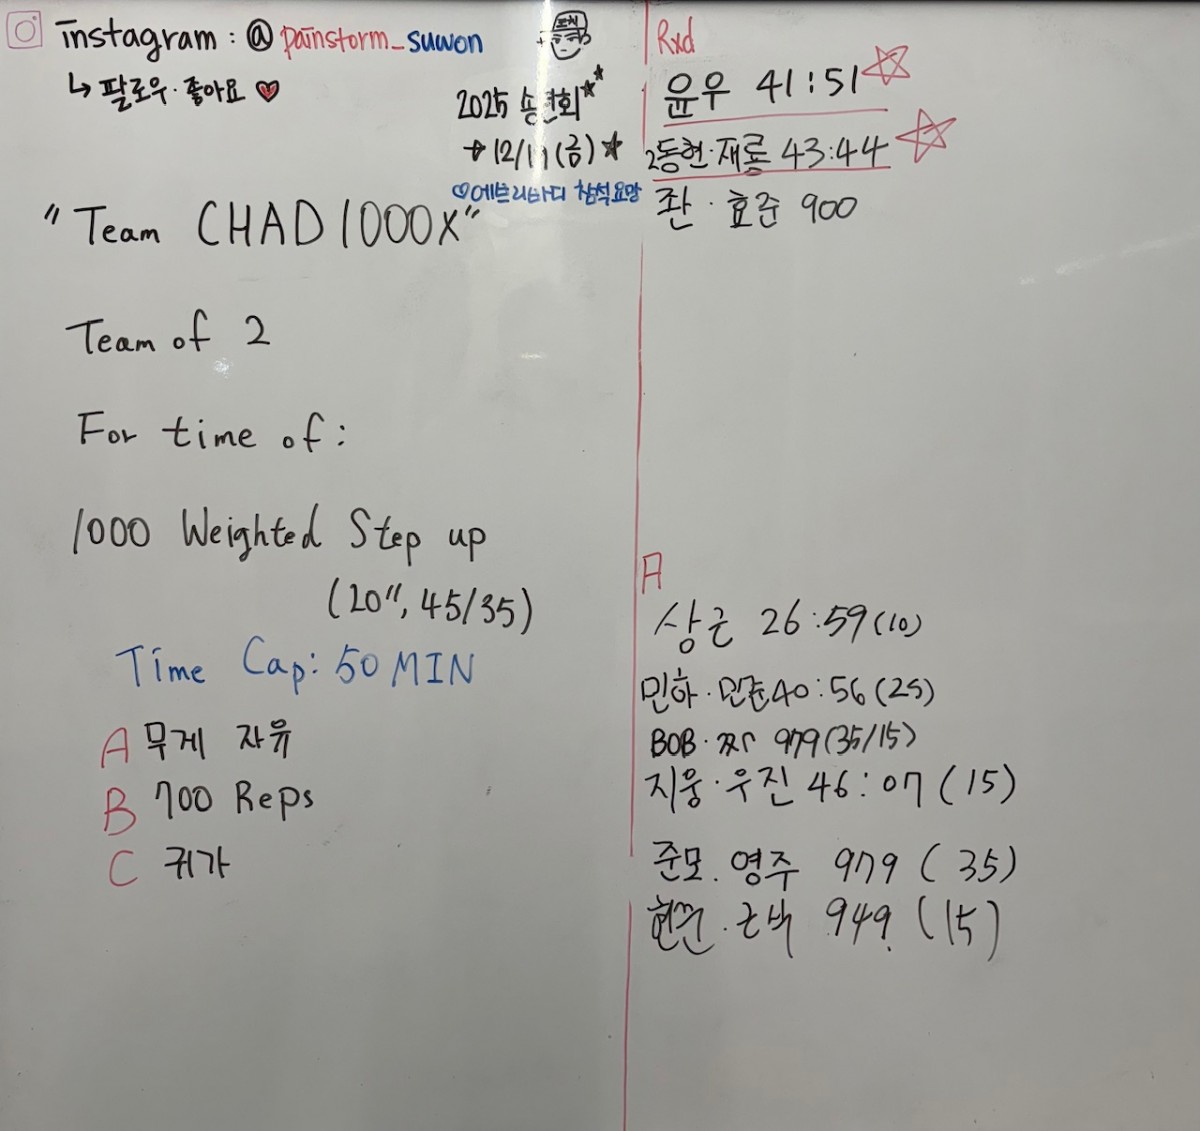 instagram : @painstorm_suwon
↳ 팔로우·좋아요 ♥
2025 송년회
→ 12/19 (금) ★
♡에브리바디 참석요망
"Team CHAD 1000X"
Team of 2
For time of:
1000 Weighted Step up
(20", 45/35)
Time Cap: 50 MIN
A 무게 자유
B 700 Reps
C 귀가
Rxd
윤우 41:51
동현·재룡 43:44
좐·효준 900
A
상근 26:59 (10)
민하·민준 40:56 (25)
BOB· 979 (35/15)
지웅·우진 46:07 (15)
준모. 영주 979 (35)
949 (15)